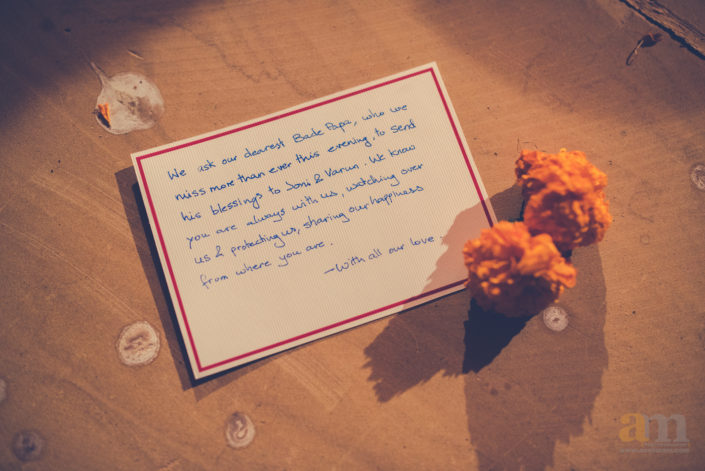 We ask our dearest Bade Papa, who we
miss more than ever this evening, to send
his blessings to Joni & Varun. We know
you are always with us, watching over
us & protecting us, sharing our happiness
from where you are.
—With all our love.
am